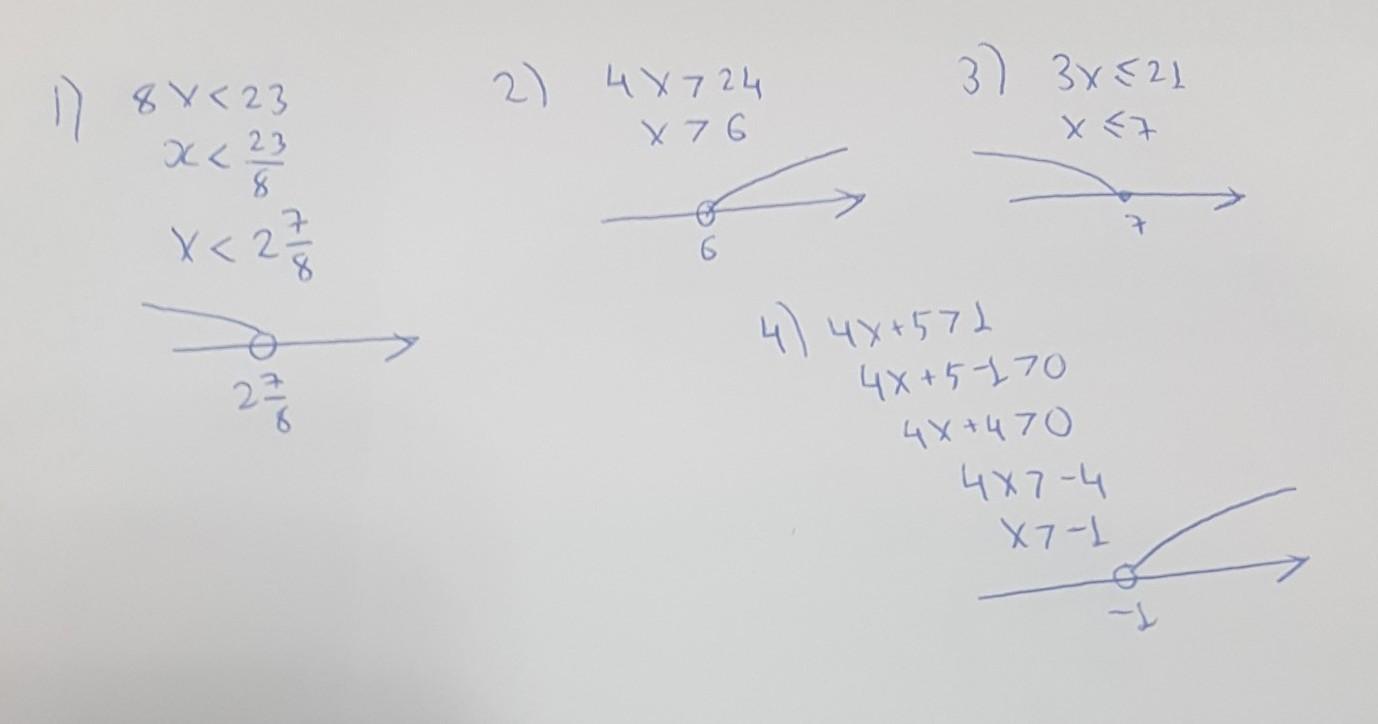 1) 8x<23
x<23/8
x<2 7/8
2 7/8
2) 4x>24
x>6
6
3) 3x≤21
x≤7
7
4) 4x+5>1
4x+5-1>0
4x+4>0
4x>-4
x>-1
-1